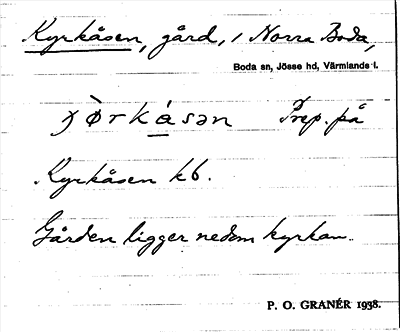 Kyrkåsen, gård, i Norra Boda,
Boda sn, Jösse hd, Värmlands l.
Prep. på
Kyrkåsen kb.
Gården ligger nedom kyrkan.
P. O. GRANÉR 1938.